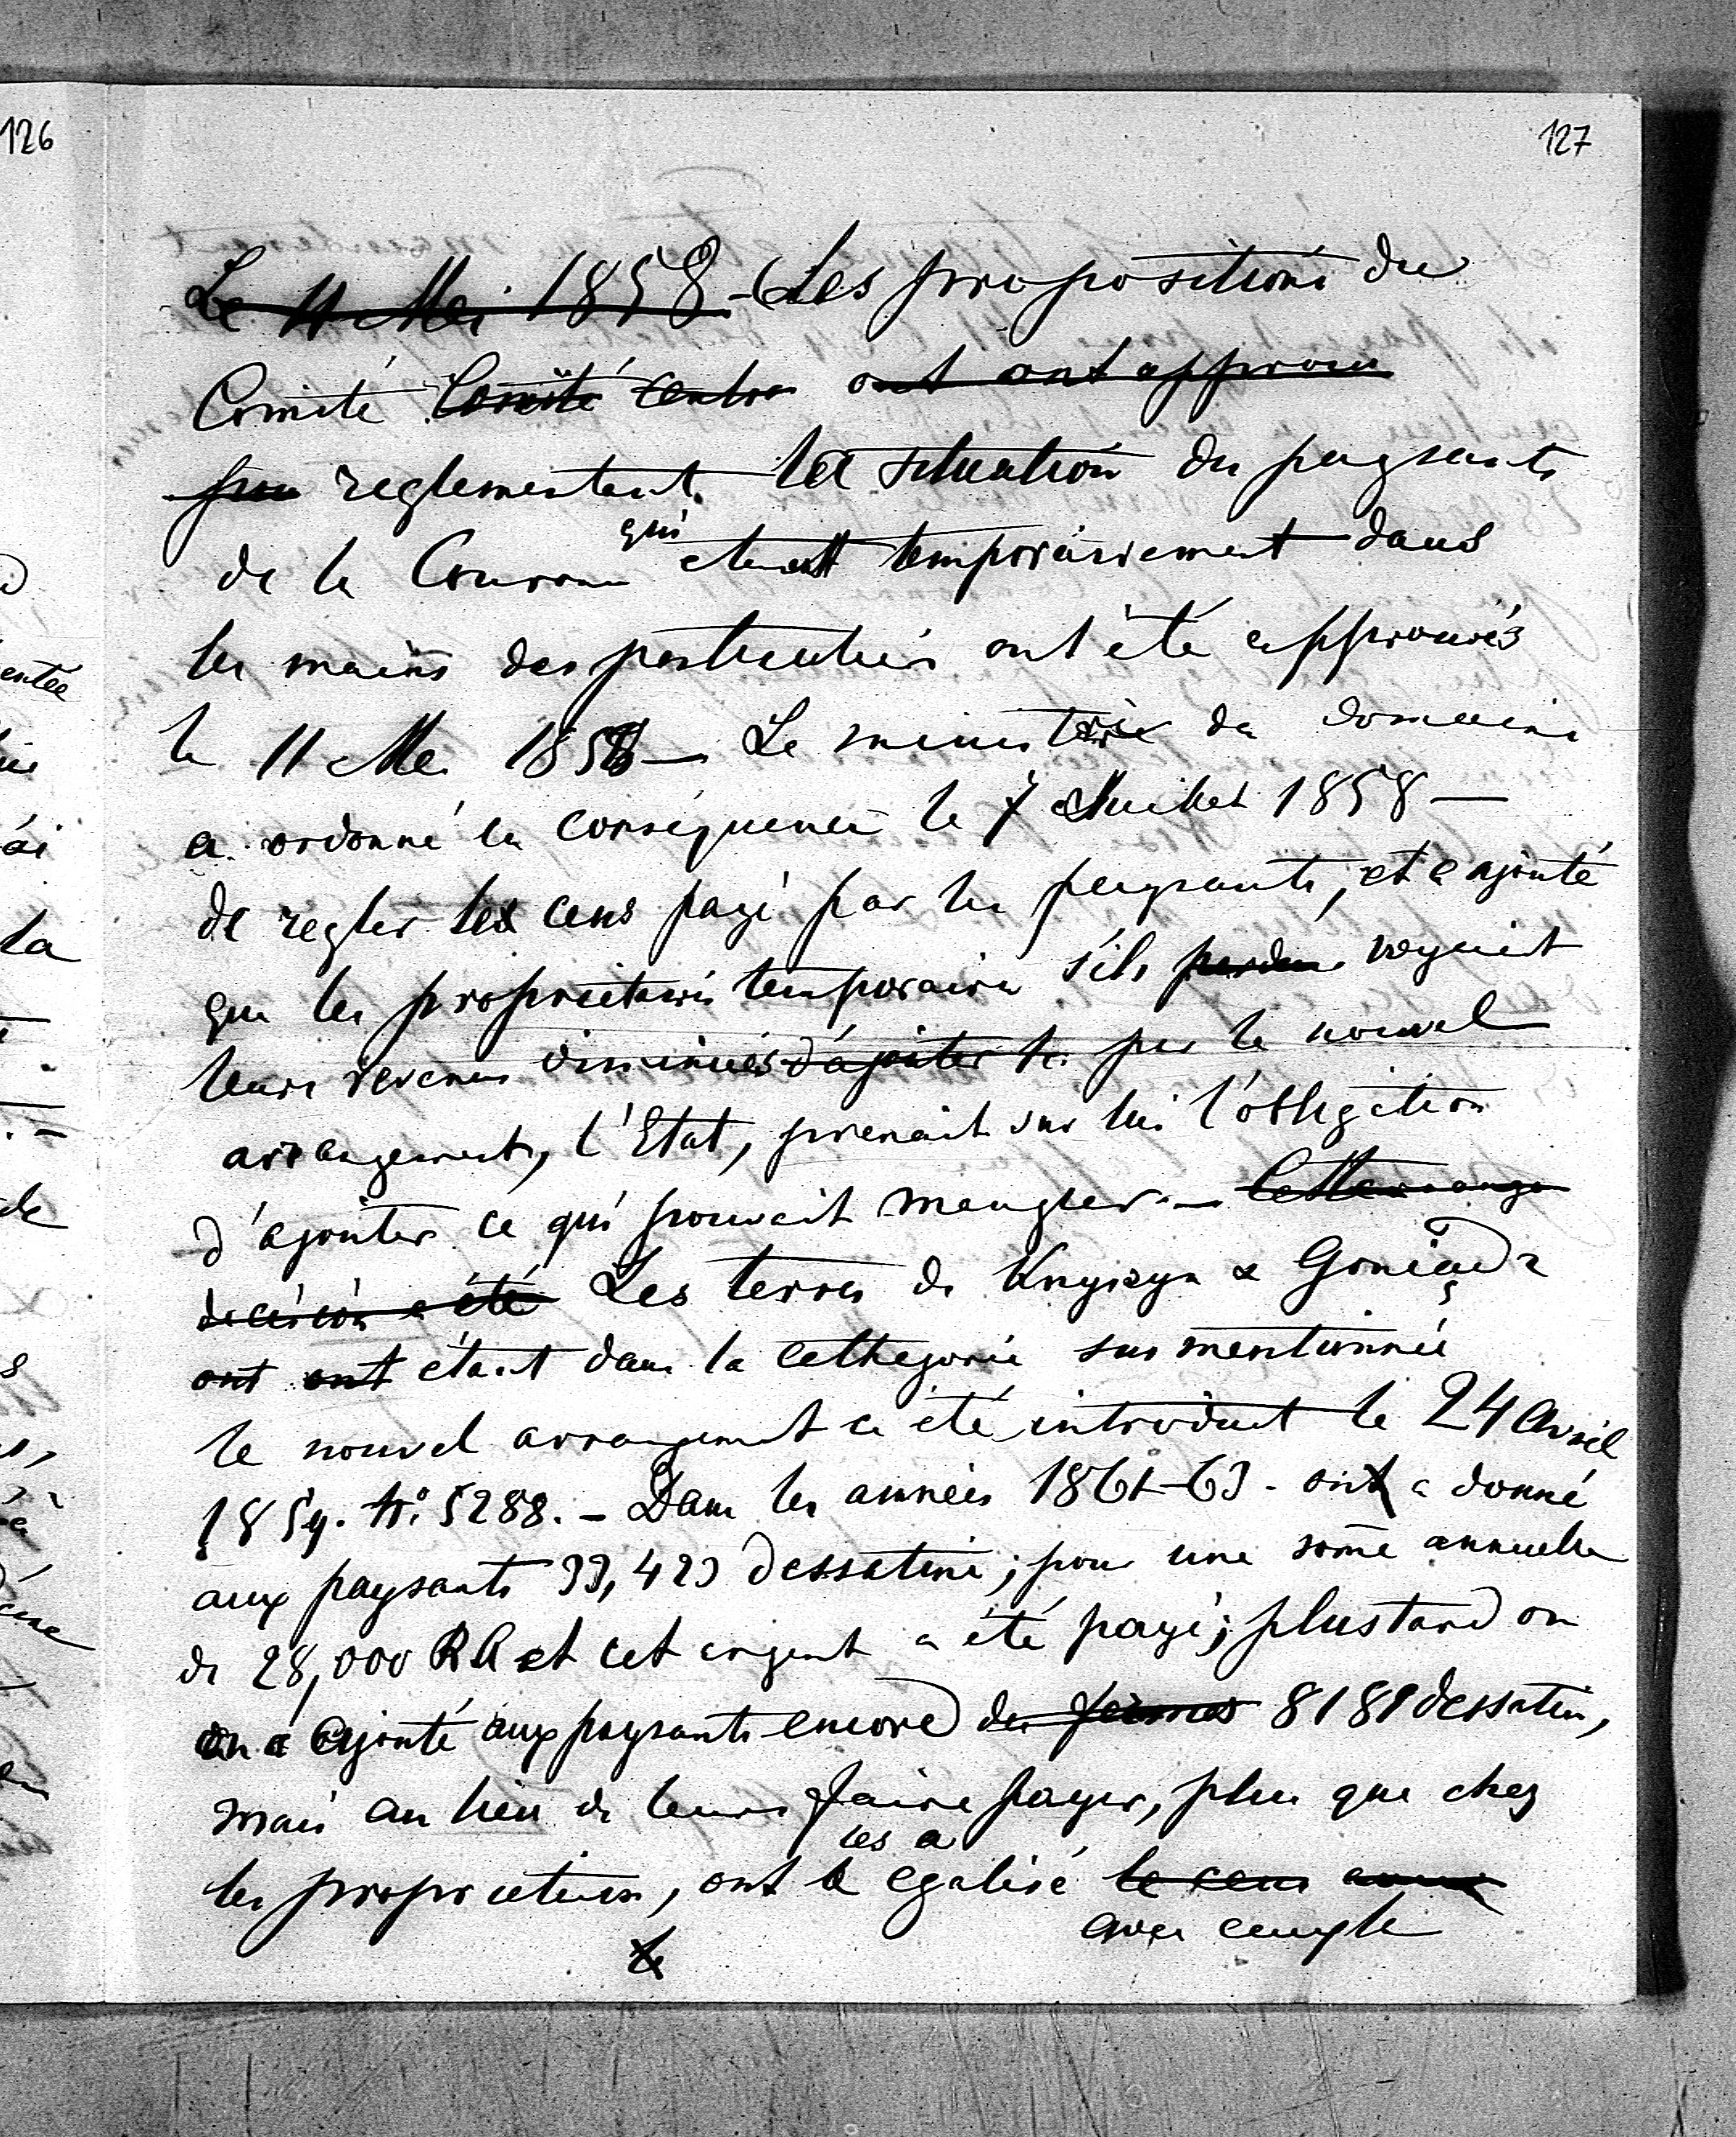 126
127
Le 11 Mai 1858 - Les propositions du
Comité Comité Centra ont ont approuv
pou reglementant la situation des paysants
de la Couronne qui etaient temporairement dans
les mains des particuliers ont été approuvés
le 11 Mai 1858 — Le ministère du domaine
a ordonné en conséquence le 7 Juillet 1858 —
de regler les cens payé par les paysants, et a ajouté
que les proprietaires temporaires s'ils voyaient
leurs revenus diminués d'ajouter le par le nouvel
arrangement, l'Etat, prenait sur lui l'obligation
d'ajouter ce qui pouvait manquer. — Cette
decision a été Les terres de Knyszyn & Goniądz
ont ont étant dans la cathegorie sus mentionnée
le nouvel arrangement a été introduit le 24 Avril
1859. No 5288. — Dans les années 1861-63. ont a donné
aux paysants 33,423 dessatine; pour une some annuelle
de 28,000 RA et cet argent a été payé; plus tard on
on a ajouté aux paysants encore des fermes 8189 dessatin,
mais au lieu de leurs faire payer, plus que chez
les proprietaires, ont les a egalisé le cens
avec
entée
la
de